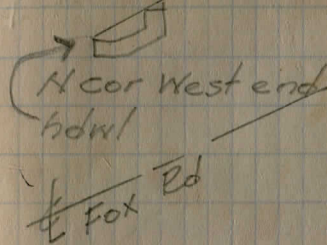 N cor West end
hdwl
℄ Fox Rd